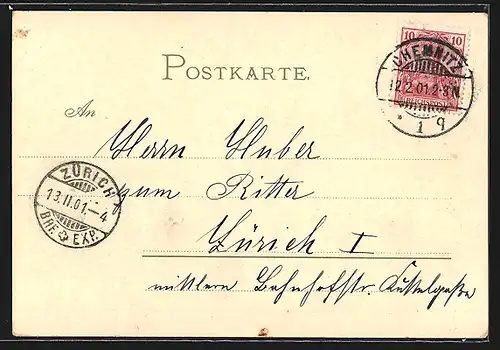 10 10
REICHSPOST
CHEMNITZ
12.2.01.2-3N.
* 1 q
POSTKARTE.
An
Herrn Huber
zum Ritter
ZÜRICH
13.II.01.–4
BRF. EXP.
Zürich I
mittlere Bahnhofstr.